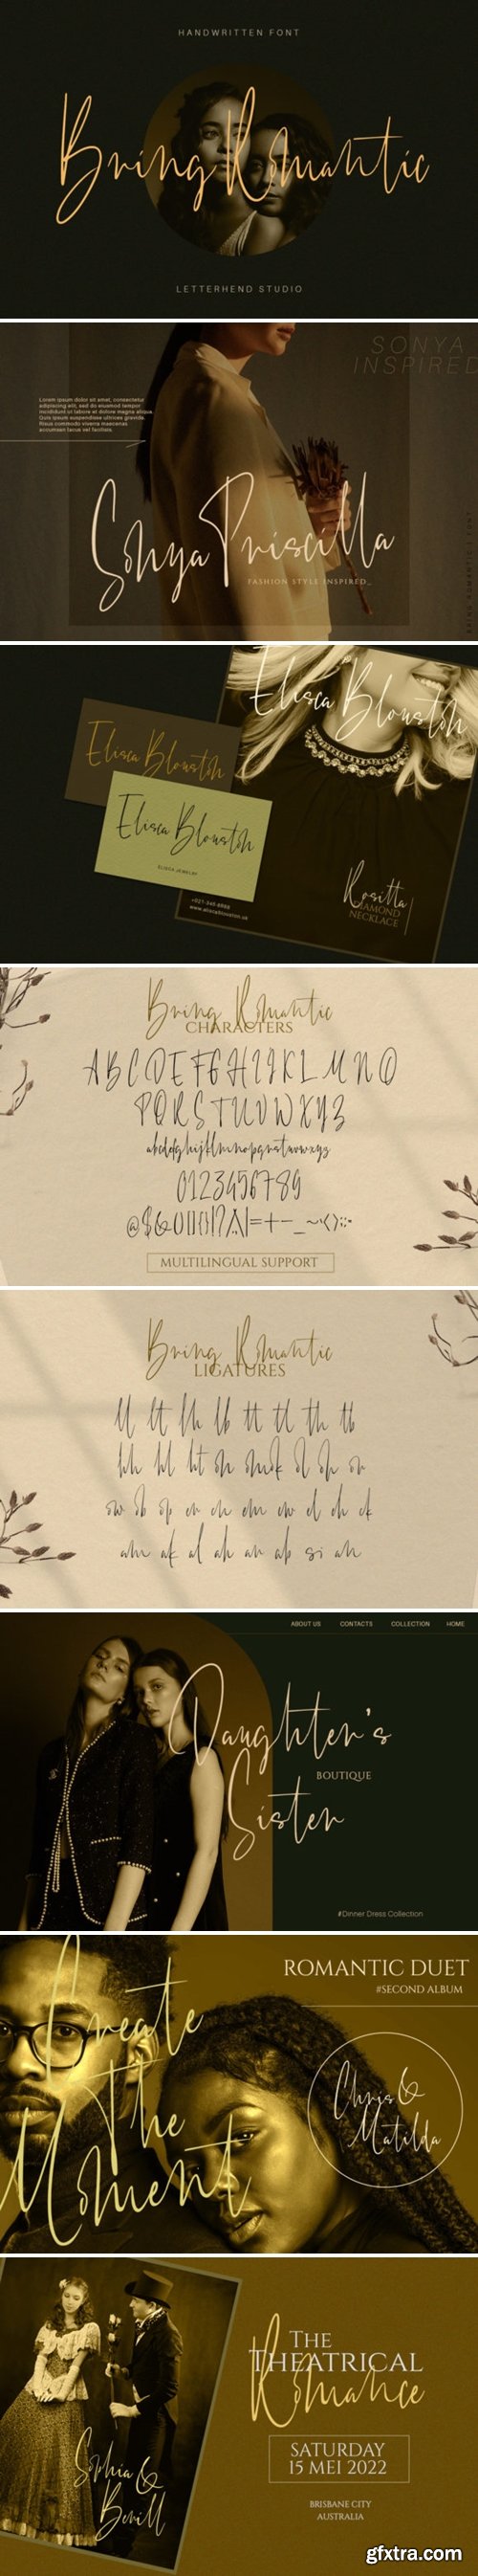 HANDWRITTEN FONT
Bring Romantic
LETTERHEND STUDIO
SONYA
INSPIRED
Lorem ipsum dolor sit amet, consectetur
adipiscing elit, sed do eiusmod tempor
incididunt ut labore et dolore magna aliqua.
Quis ipsum suspendisse ultrices gravida.
Risus commodo viverra maecenas
accumsan lacus vel facilisis.
Sonya Priscilla
FASHION STYLE INSPIRED_
BRING ROMANTIC | FONT
Elisca Blouston
Elisca Blouston
Elisca Blouston
ELISCA JEWELRY
Rositta
DIAMOND
NECKLACE
www.eliscablouston.us
Bring Romantic
CHARACTERS
A B C D E F G H I J K L M N O
P Q R S T U V W X Y Z
abcdefghijklmnopqrstuvwxyz
0123456789
MULTILINGUAL SUPPORT
Bring Romantic
LIGATURES
ABOUT US CONTACTS COLLECTION HOME
Daughter's
BOUTIQUE
Sister
#Dinner Dress Collection
Create
The
Moment
ROMANTIC DUET
#SECOND ALBUM
Chris &
Matilda
THE
THEATRICAL
Romance
SATURDAY
15 MEI 2022
BRISBANE CITY
AUSTRALIA
Sophia &
Berill
gfxtra.com